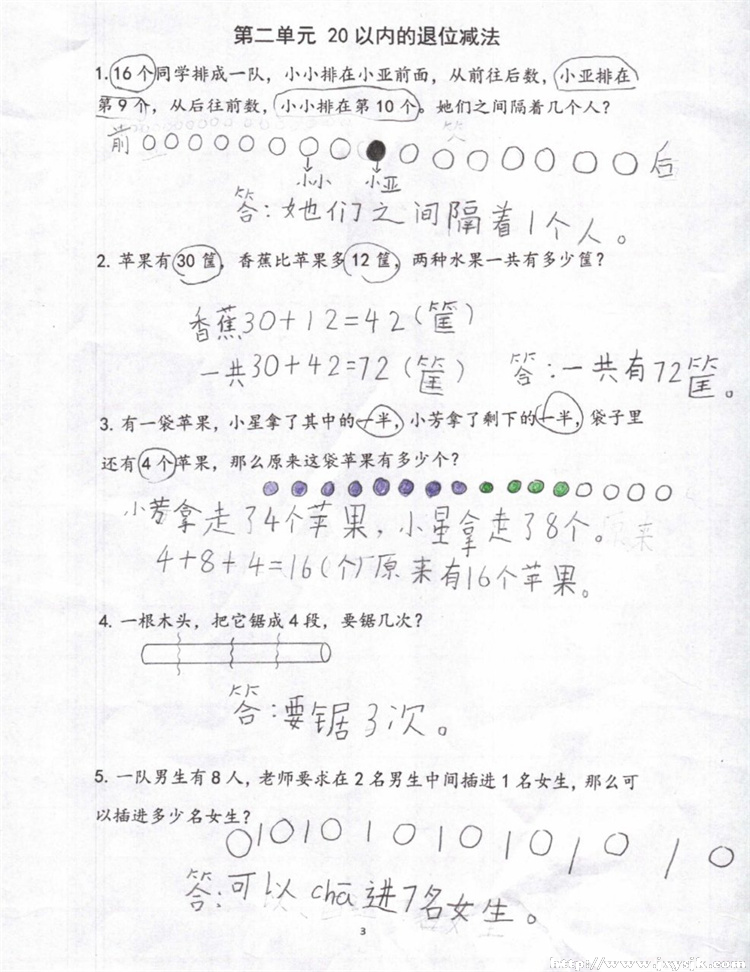 第二单元 20 以内的退位减法
1. 16 个同学排成一队，小小排在小亚前面，从前往后数，小亚排在
第 9 个，从后往前数，小小排在第 10 个。她们之间隔着几个人？
前 后
小小 小亚
答：她们之间隔着1个人。
2. 苹果有 30 筐，香蕉比苹果多 12 筐，两种水果一共有多少筐？
香蕉30+12=42（筐）
一共30+42=72（筐） 答：一共有72筐。
3. 有一袋苹果，小星拿了其中的一半，小芳拿了剩下的一半，袋子里
还有 4 个苹果，那么原来这袋苹果有多少个？
小芳拿走了4个苹果，小星拿走了8个。
4+8+4=16（个）原来有16个苹果。
4. 一根木头，把它锯成 4 段，要锯几次？
答：要锯3次。
5. 一队男生有 8 人，老师要求在 2 名男生中间插进 1 名女生，那么可
以插进多少名女生？
答：可以chā进7名女生。
3
http://www.jxysjk.com